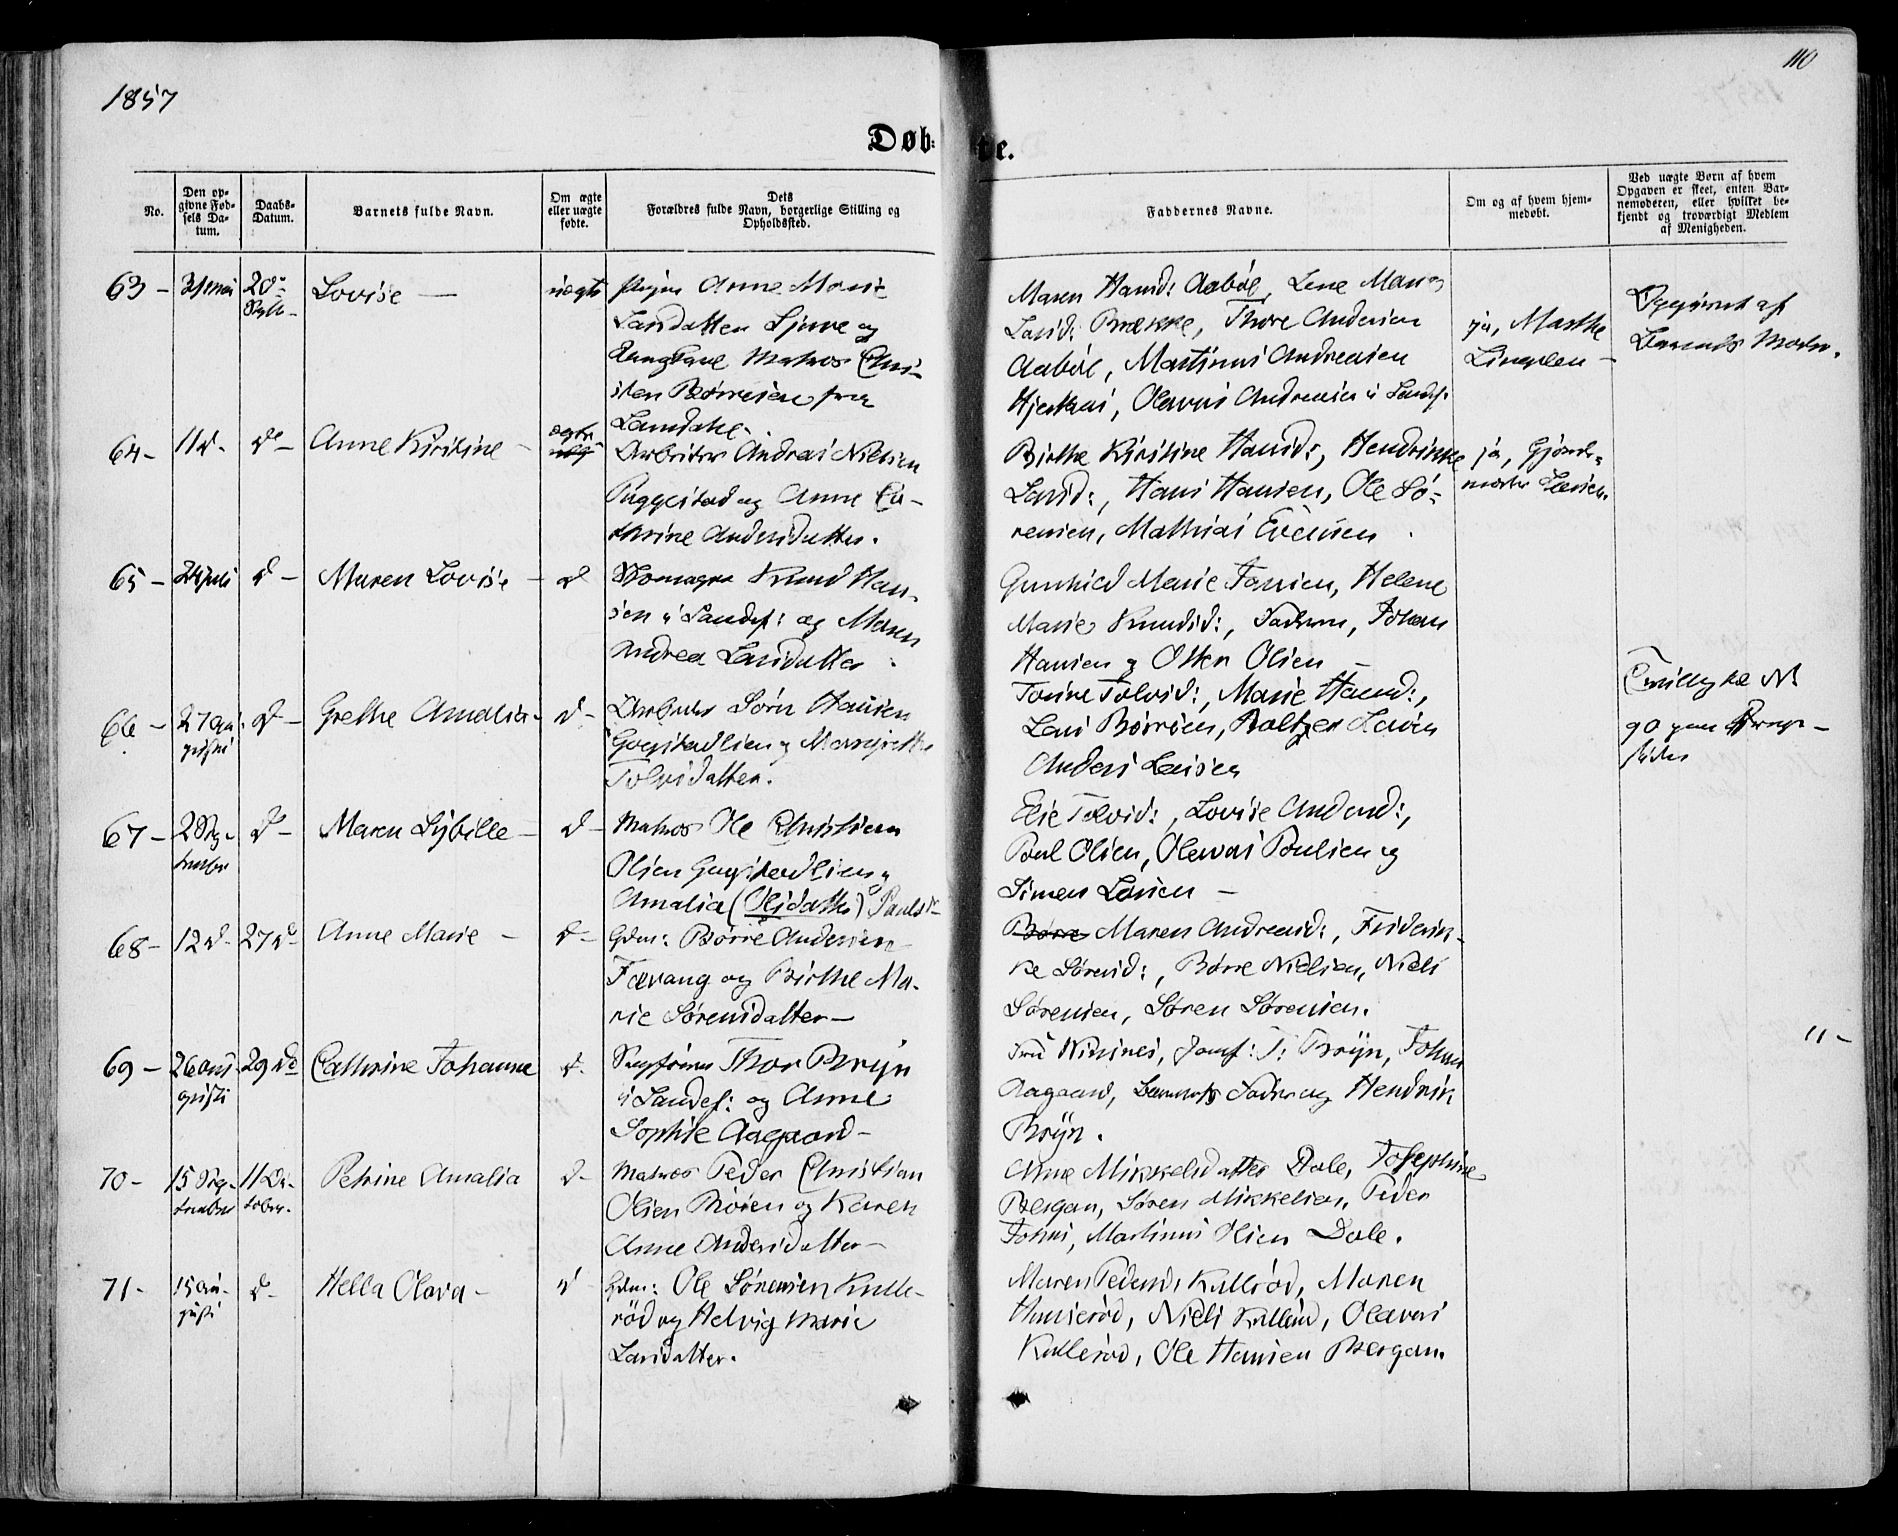 1857
110
Døb-
te.
No.
Den op-
givne Fød-
sels Da-
tum.
Daabs-
Datum.
Barnets fulde Navn.
Om ægte
eller uægte
fødte.
Dets
Forældres fulde Navn, borgerlige Stilling og
Opholdssted.
Faddernes Navne.
Om og af hvem hjem-
medøbt.
Ved uægte Børn af hvem
Opgaven er skeet, enten Bar-
nemoderen, eller hvilket be-
kjendt og troværdigt Medlem
af Menigheden.
63 - 31 mai 20de
Septb-
Lovise -
uægte
Pigen Anne Marie
Larsdatter Sjuve og
Ungkarl Matros Chri-
sten Børresen fra
Laurdahl.
Maren Hansd: Aabøl, Lene Marie
Larsd: Brække, Thore Andersen
Aabøl, Martinus Andreasen
Hjertnæs, Olavus Andreasen i Sandef.
ja, Marthe
Opgivet af
Barnets Moder.
64 - 11 d- do - Anne Kirstine -
ægte
Arbeider Andreas Nielsen
Puggestad og Anne Ca-
thrine Andersdatter.
Birthe Kirstine Hansd:, Hendrikke
Larsd:, Hans Hansen, Ole Sø-
rensen, Mathias Evensen
ja, Gjorde-
moder Larsen.
65 - 24 juli d - Maren Lovise - d
Skomager Knud Han-
sen i Sandef: og Maren
Andrea Larsdatter.
Gunhild Marie Jansen, Helene
Marie Knudsd:, Faderen, Johan
Hansen og Olsen -
66 - 27 au-
gusti d - Grethe Amalia - d -
Arbeider Søren Hansen
Gogstadlien og Margrethe
Tolvsdatter.
Torine Tolvsd:, Marie Hansd:,
Lars Børresen, Baltzer Larsen
Anders Larsen
Tvilling se N:
90 paa Drenge-
siden
67 - 2 Sep-
tember d - Maren Sybille - d -
Matros Ole Christian
Olsen Gogstadlien og
Amalia (Olsdatter) Paulsd-
Elie Tolvsd:, Lovise Andersd:,
Poul Olsen, Olavus Poulsen og
Simen Larsen -
68 - 12 d- 27 d- Anne Marie - d -
Gdm: Børre Andersen
Farvang og Birthe Ma-
rie Sørensdatter -
Børre Maren Andreasd:, Friderik-
ke Sørensd:, Børre Nielsen, Niels
Sørensen, Søren Sørensen.
69 - 26 au-
gusti 29 do Cathrine Johanne d.
Thor Bryn
i Sandef: og Anne
Sophie Aagaard -
Fru Nissnes, Jomf: T: Bryn, Johan
Aagaard, Barnets Fader og Hendrik
Bryn.
11 -
70 - 15 Sep-
tember 11 Ok-
tober. Petrine Amalia d -
Matros Peder Christian
Olsen Broien og Karen
Anne Andersdatter -
Anne Mikkelsdatter Dale, Josephine
Bergan, Søren Mikkelsen, Peder
Johns, Martinus Olsen Dale.
71 - 15 au-
gusti d - Hella Olava - d -
Gdm: Ole Sørensen Kulle-
rød og Helvig Marie
Larsdatter.
Maren Pedersd: Kullerød, Maren
Haneserød, Niels Kullerød, Olavus
Kullerød, Ole Hansen Bergan.